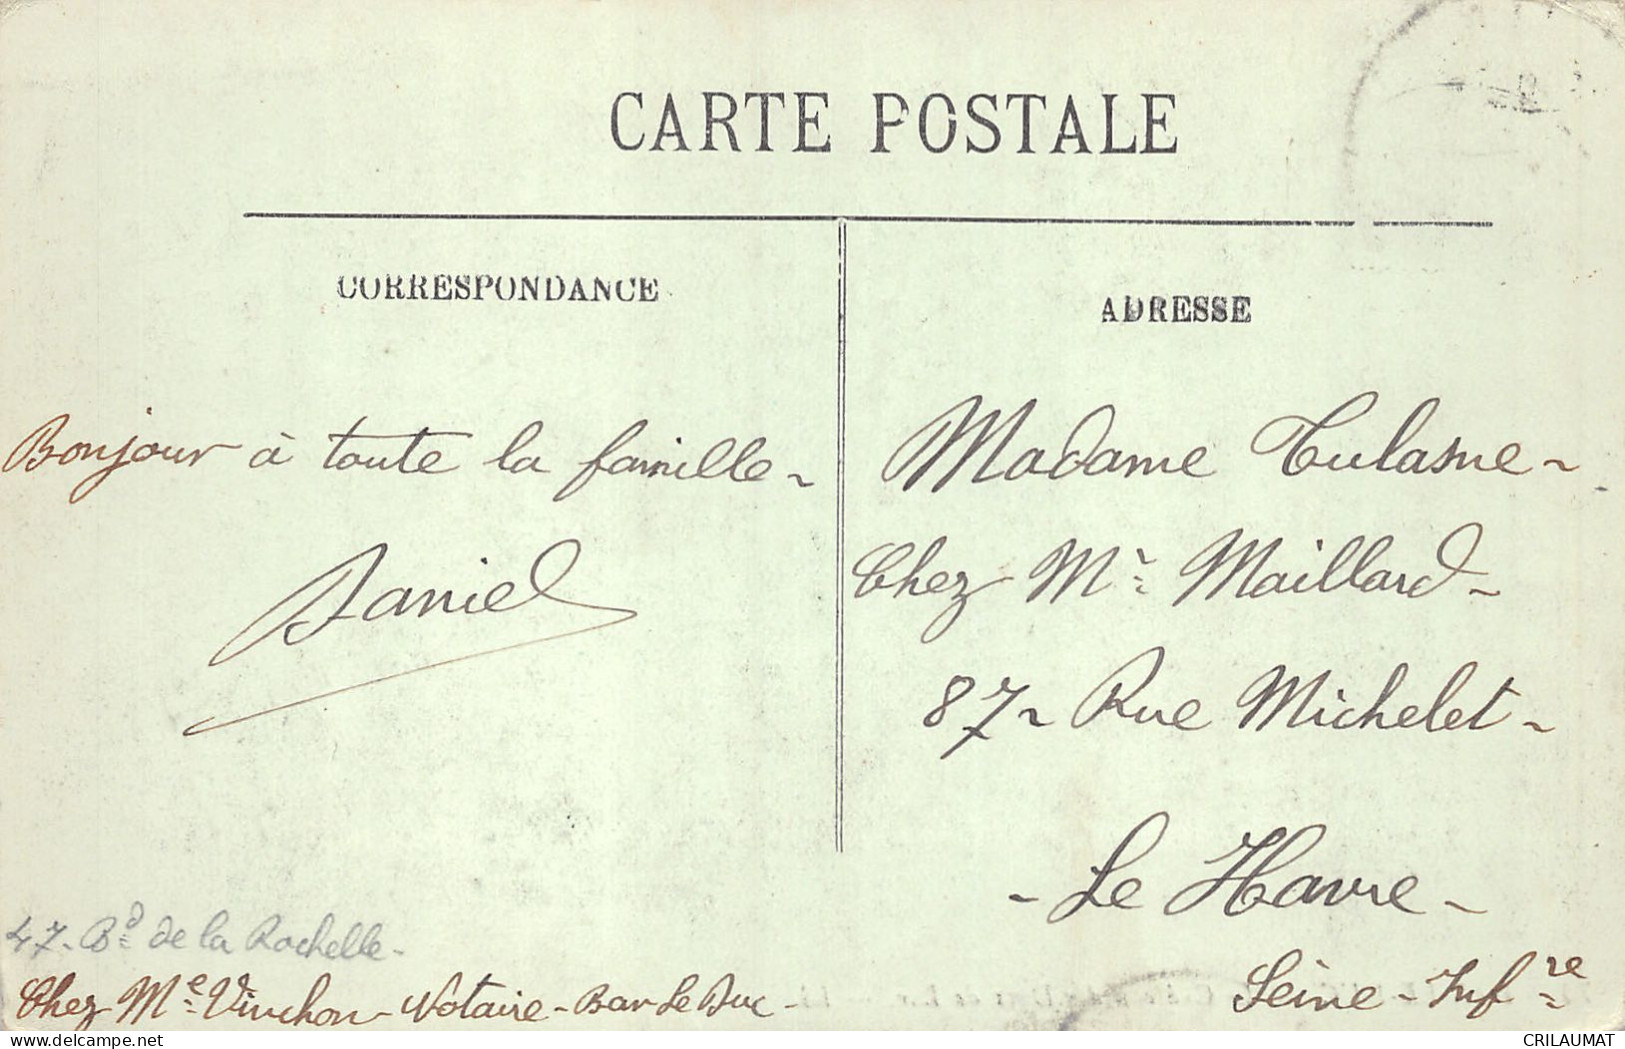 CARTE POSTALE
CORRESPONDANCE
ADRESSE
Bonjour à toute la famille~
Daniel
47- Bd de la Rochelle-
Chez Me Vinchon-Notaire-Bar Le Duc-
Madame Tulasne~
Chez Mr Maillard-
87~ Rue Michelet~
-Le Havre-
Seine-Infre
CRILAUMAT